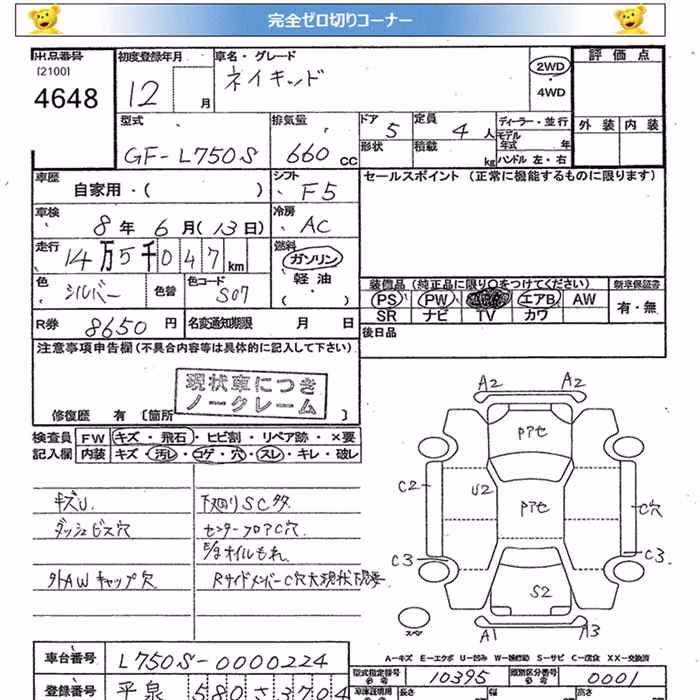 完全ゼロ切りコーナー
出品番号 初度登録年月 車名・グレード 評価点
[2100]
4648 12 月 ネイキッド 2WD
・
4WD
外装 内装
型式 排気量 ドア 定員 ディーラー・並行
GF-L750S 660 cc 5 4 人 モデル年式 年
形状 積載 kg ハンドル 左・右
車歴 シフト セールスポイント (正常に機能するものに限ります)
自家用・( ) F5
車検 冷房
8年 6月 (13日) AC
走行 燃料
14万5千047 km ガソリン
・
軽油
・
( )
色 色替 色コード
シルバー S07
装備品 (純正品に限り○をつけてください) 新車保証書
PS PW エアB AW 有・無
SR ナビ TV カワ
R券 8650円 名変通知期限 月 日 後日品
注意事項申告欄 (不具合内容等は具体的に記入して下さい)
現状車につき
ノークレーム
修復歴 有 [箇所 ]
検査員 FW キズ・飛石・ヒビ割・リペア跡・×要
記入欄 内装 キズ・汚レ・コゲ・穴・スレ・キレ・破レ
キズU 下回りSC多
ダッシュビス穴 センターフロアC穴
E/gオイルもれ
外AWキャップ穴 RサイドメンバーC穴大現状
A2 A2
Pアセ
C2 U2 Pアセ C穴
C3 C3
S2
スペア A1 A3
A-キズ E-エクボ U-凹み W-補修跡 S-サビ C-腐食 XX-交換済
車台番号 L750S-0000224 型式指定番号 10395 類別区分番号 0001
登録番号 平泉 580 さ 3704 長さ 幅 高さ